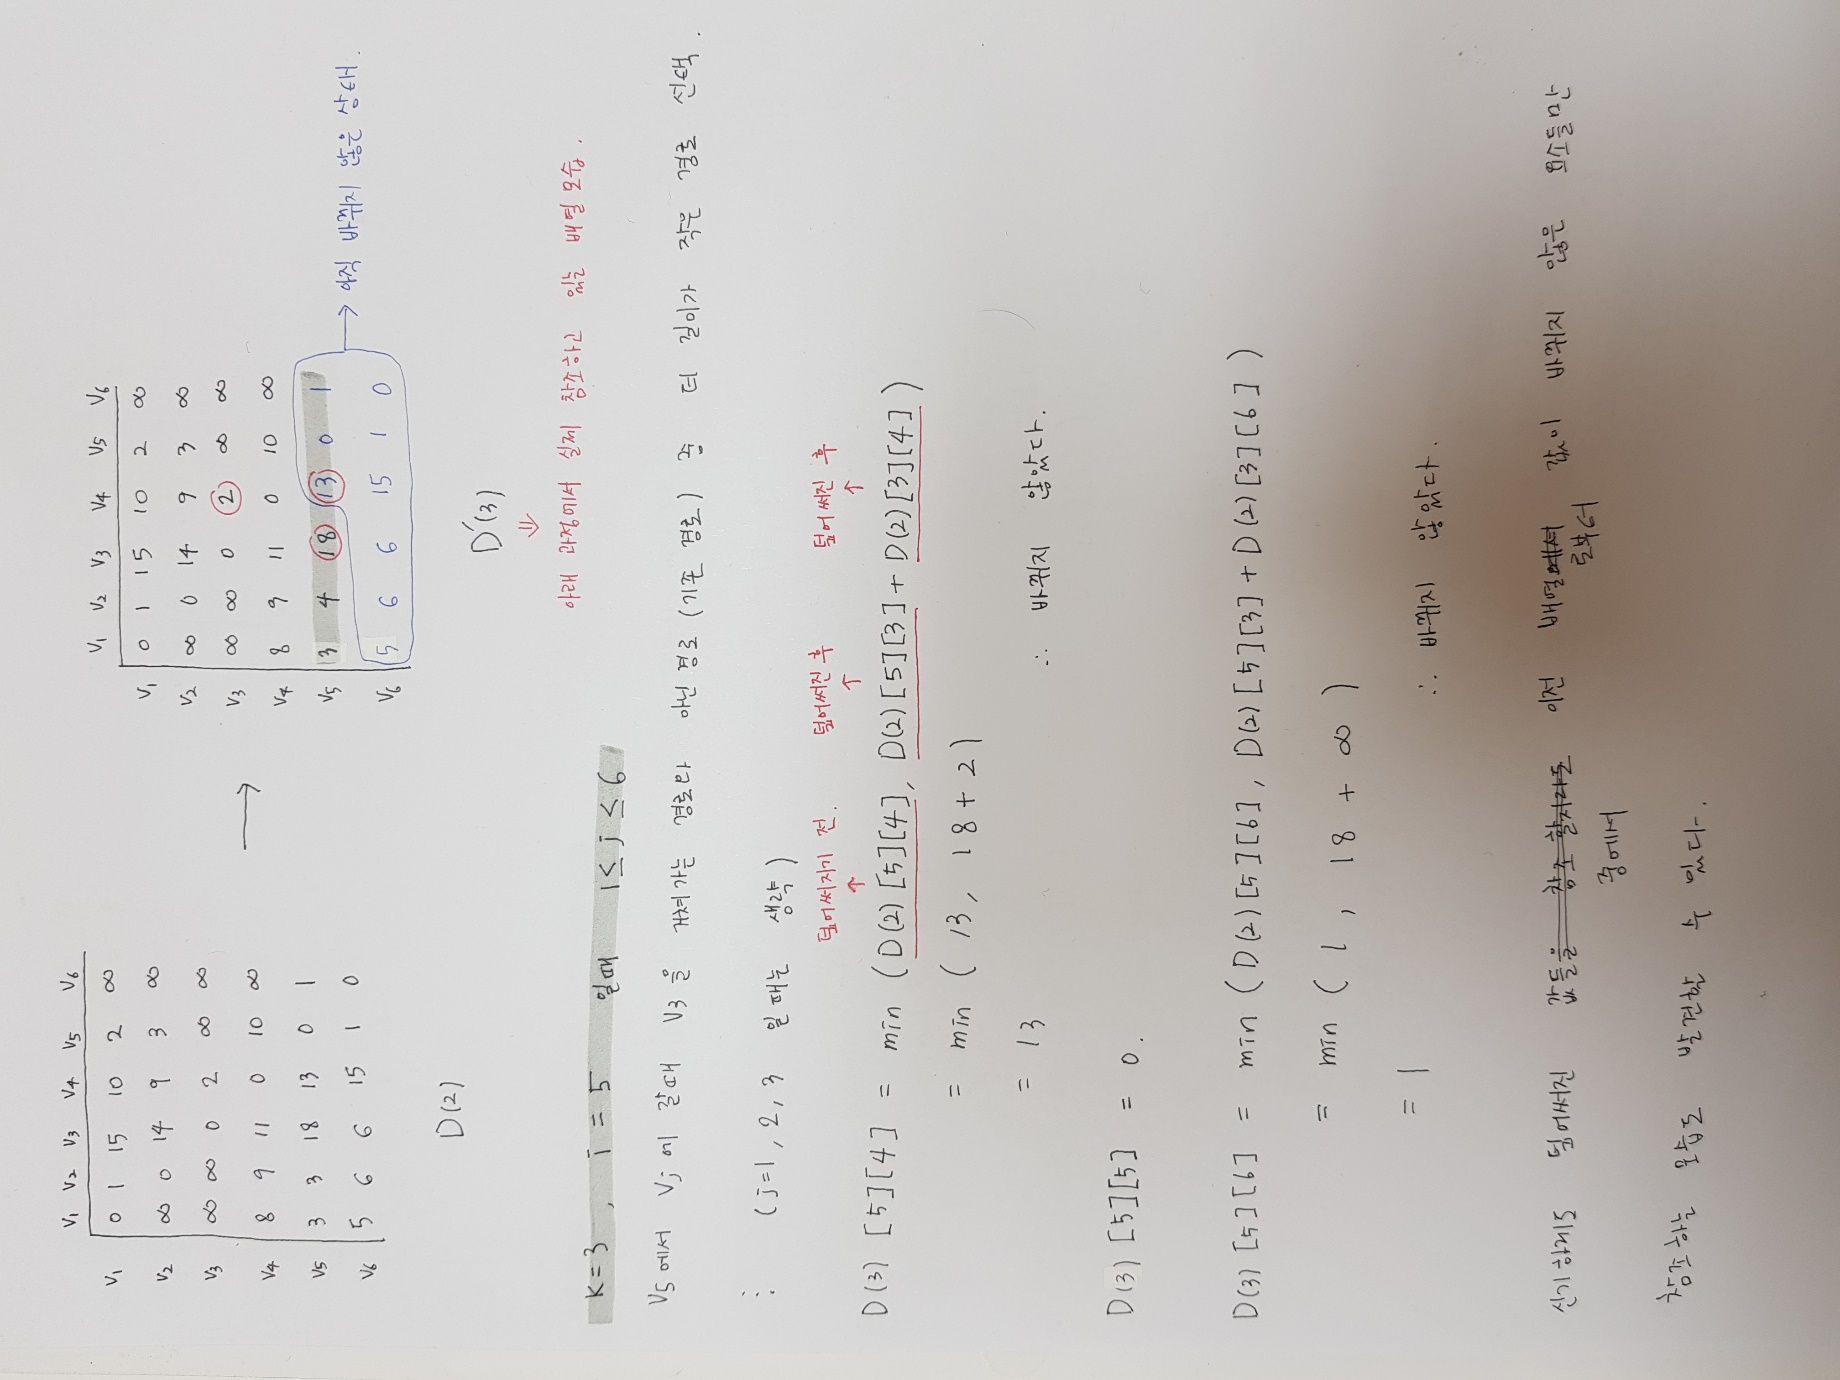 V1 V2 V3 V4 V5 V6
V1 0 1 15 10 2 ∞
V2 ∞ 0 14 9 3 ∞
V3 ∞ ∞ 0 2 ∞ ∞
V4 8 9 11 0 10 ∞
V5 3 3 18 13 0 1
V6 5 6 6 15 1 0
D(2)
→
V1 V2 V3 V4 V5 V6
V1 0 1 15 10 2 ∞
V2 ∞ 0 14 9 3 ∞
V3 ∞ ∞ 0 2 ∞ ∞
V4 8 9 11 0 10 ∞
V5 3 4 18 13 0 1
V6 5 6 6 15 1 0
→ 아직 바뀌지 않은 상태.
D′(3)
⇓
아래 과정에서 실제 참조하고 있는 배열 모습.
K=3, i=5 일때 1≤j≤6
V5에서 Vj에 갈때 V3을 거쳐가는 경로와 아닌 경로(기존 경로) 중 더 길이가 작은 경로 선택.
⋮ (j=1,2,3 일때는 생략)
덮어써지기 전. 덮어써진 후 덮어써진 후
↑ ↑ ↑
D(3)[5][4] = min(D(2)[5][4], D(2)[5][3]+D(2)[3][4])
= min(13, 18+2)
= 13 ∴ 바뀌지 않았다.
D(3)[5][5] = 0.
D(3)[5][6] = min(D(2)[5][6], D(2)[5][3]+D(2)[3][6])
= min(1, 18+∞)
= 1 ∴ 바뀌지 않았다.
신기하게도 덮어써진 값들을 참조 할지라도 이전 배열에서 값이 바뀌지 않은 요소들만
중에서 로부터
참조하는 모습도 발견할 수 있다.